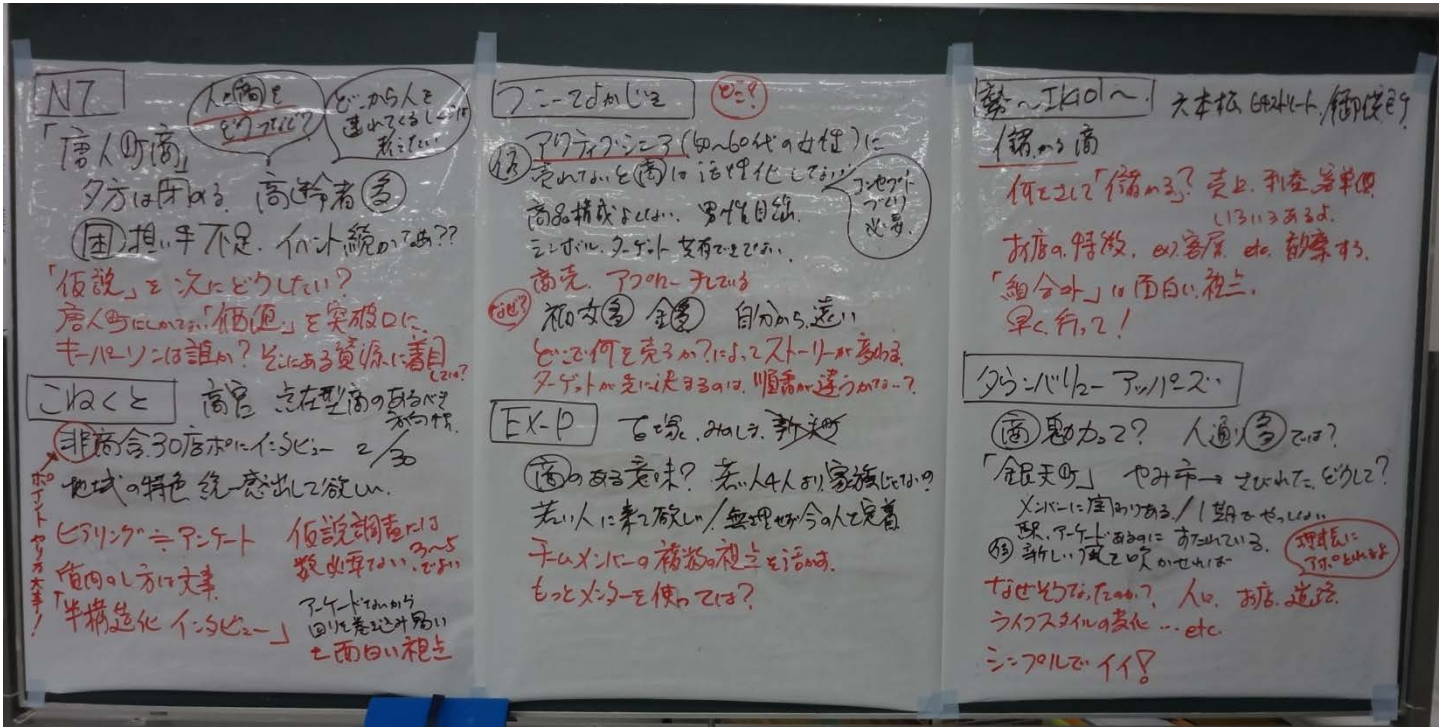 N7
人と商を
どうつなぐ?
どこから人を
連れてくるしくみ
考えたい
「唐人町商」
夕方は閉める 高齢者多
困 担い手不足. イベント続かってあ??
「仮説」を次にどうしたい?
唐人町にしかない「価値」を突破口に
キーパーソンは誰か? そこにある資源に着目
しては?
こねくと
高宮 点在型商のあるべき
方向性
非商会30店ポにインタビュー 2/30
地域の特色 統一感出して欲しい.
ポイント
ヤリ方大事!
ヒアリング≒アンケート
質問のし方は大事
「半構造化インタビュー」
仮説調査には
数必要ない. 3〜5
でよい
アーケードないから
回りを巻き込み易い
と面白い視点
どこ?
アクティブ・シニア(50〜60代の女性)に
仮 売れないと商は活性化しない
商品構成よくない. 男性目線
シンボル. ターゲット共有できてない.
コンセプト
づくり
必要.
商売. アプローチしている
なぜ?
自分から遠い
どこで何を売るか?によってストーリーが変わる
ターゲットが先に決まるのは. 順番が違うかな〜?
EX-P
商のある意味? 若い人4人より家族じゃないの?
若い人に来て欲しい/無理せず今の人で定着
チームメンバーの複数の視点を活かす.
もっとメンターを使っては?
勢〜IKIOI〜
六本松
儲かる商
何をさして「儲かる」? 売上. 利益. 客単価
いろいろあるよ.
お店の特徴. ex)客層. etc. 観察する.
「組合外」は面白い視点.
早く行って!
タウンバリューアッパーズ
商魅力って? 人通り多では?
「銀天町」 やみ市→さびれた. どうして?
アーケードあるのに すたれている.
仮 新しい風を吹かせれば
理事長に
アポとれるよ
なぜそうなったのか? 人口. お店. 道路.
ライフスタイルの変化…etc.
シンプルでイイ!